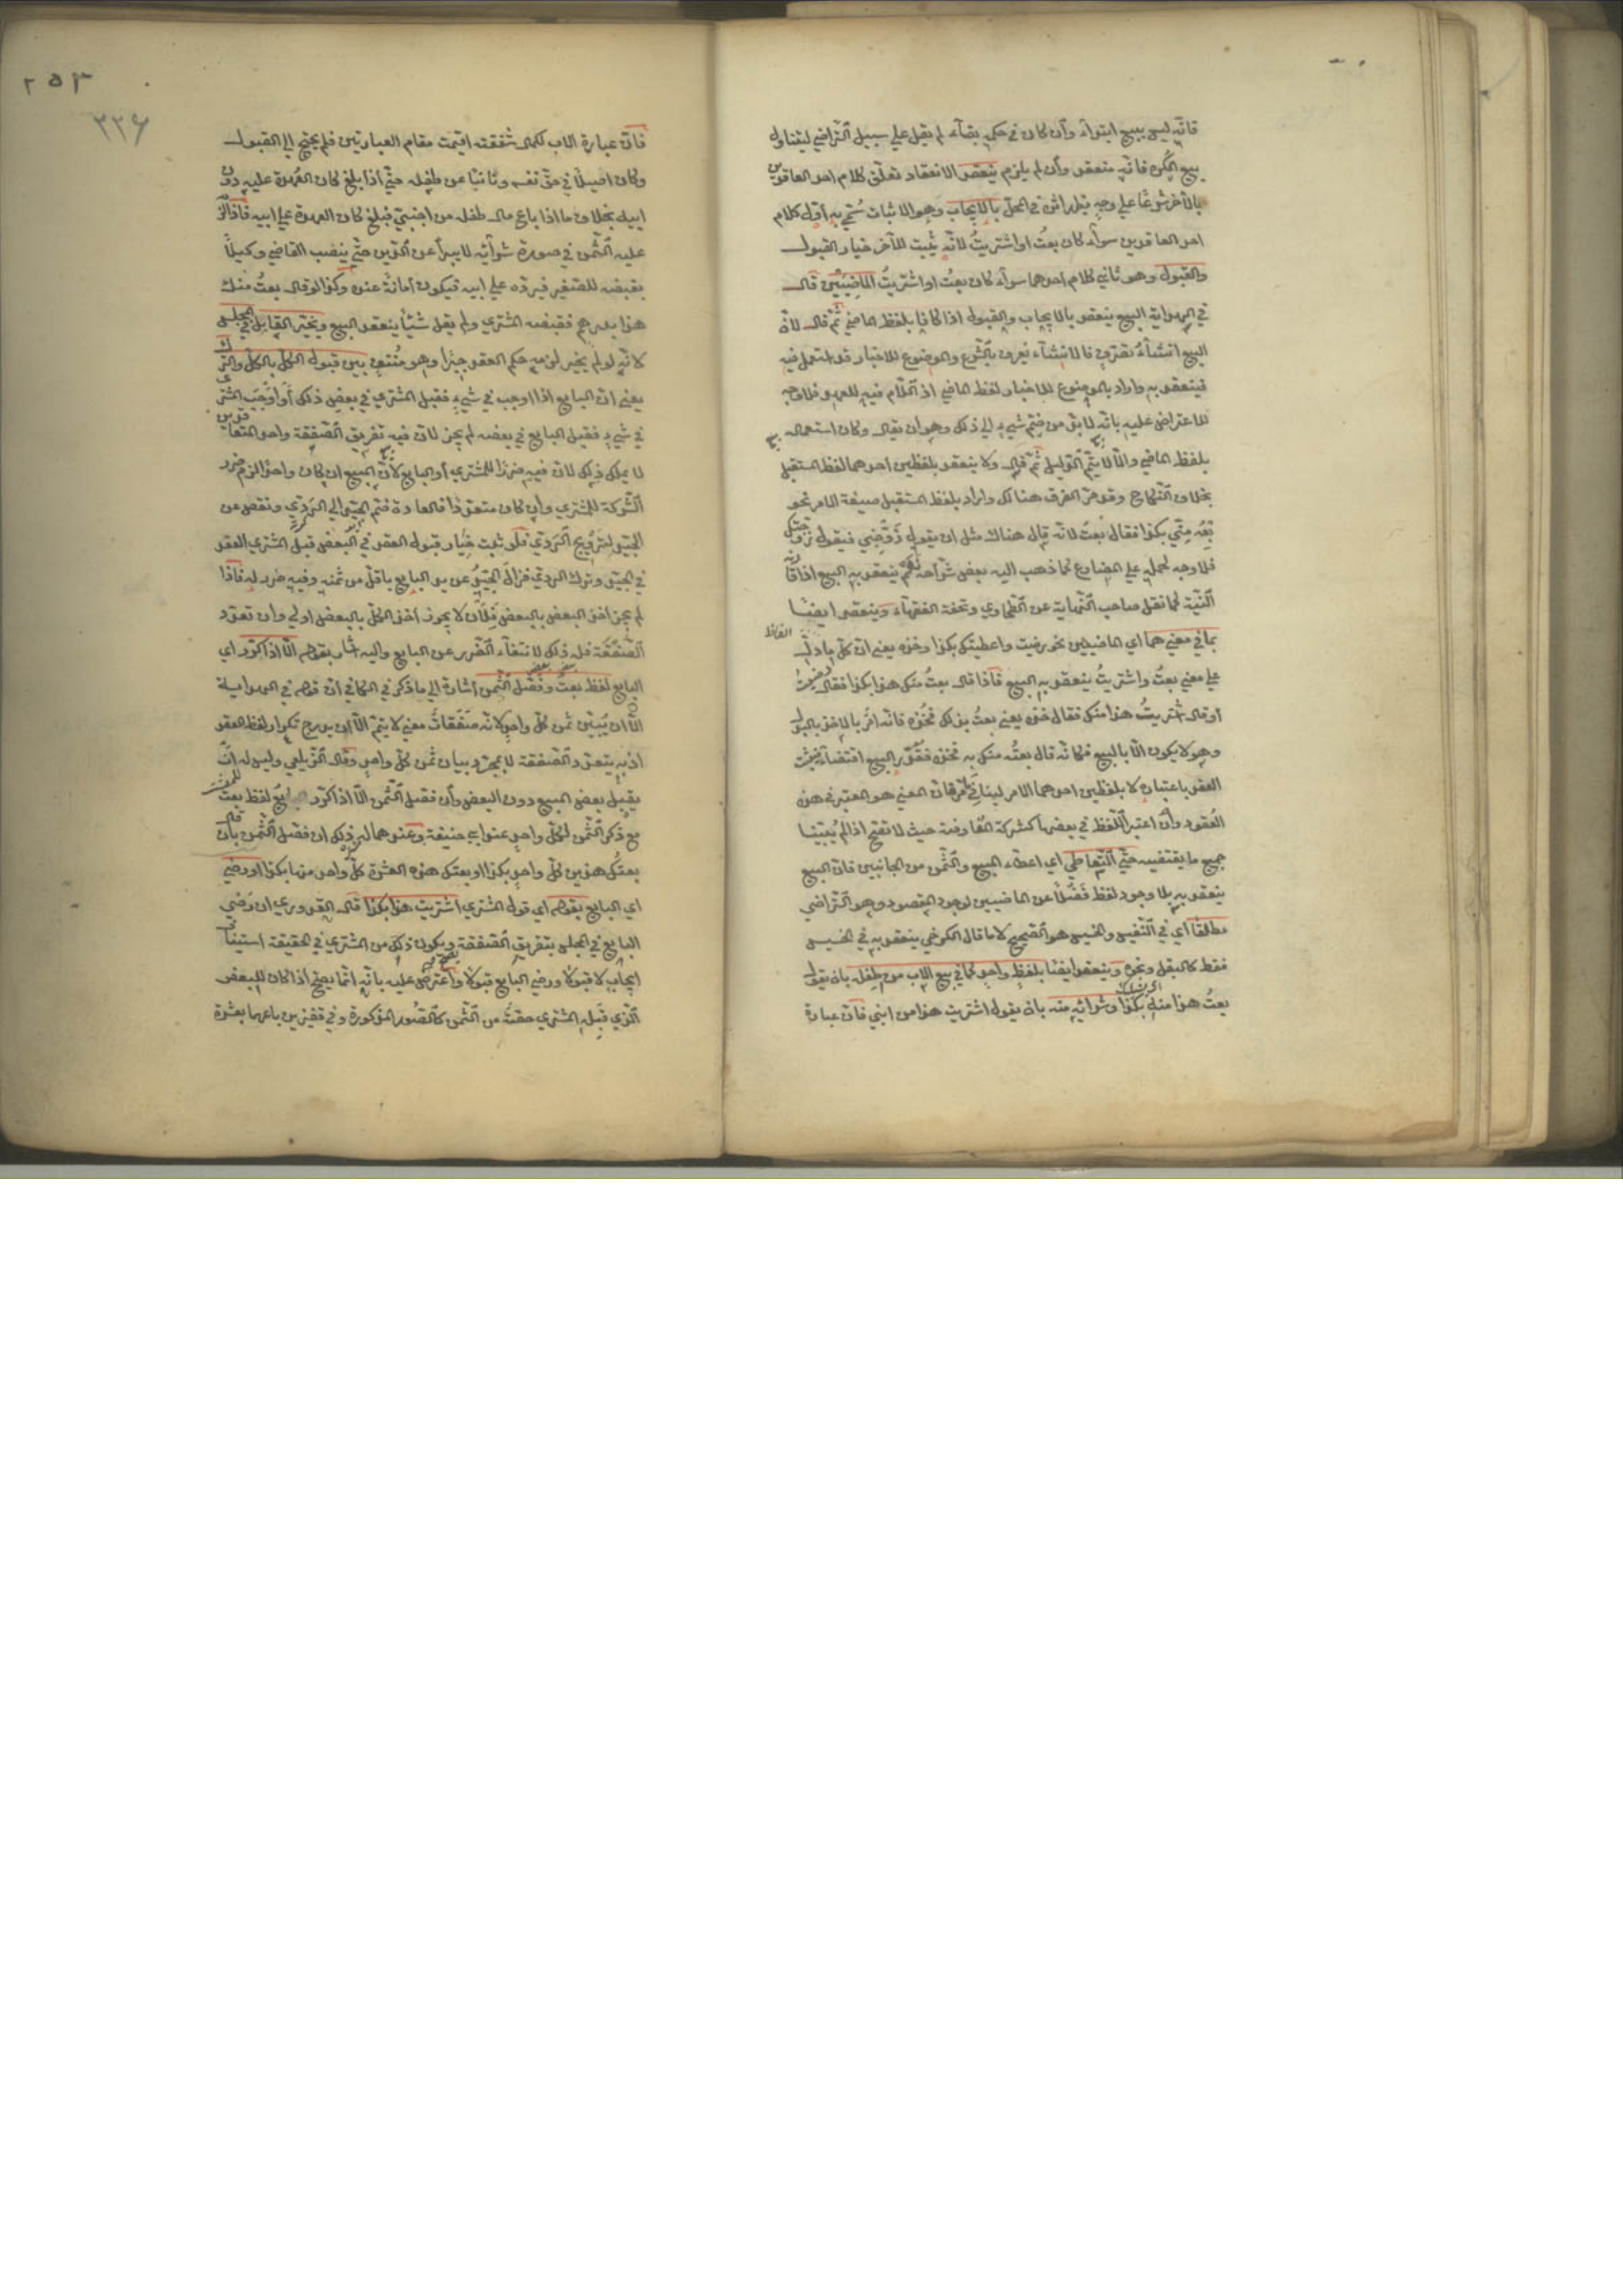 فانه ليس ببيع ابتداء وان كان في حكمه بقاء لم يقل على سبيل التراضي ليتناول
بيع المكره فانه منعقد وان لم يلزم ينعقد الانعقاد تعلق كلام احد العاقدين
بالآخر شرعا على وجه يظهر اثره في المحل بالايجاب وهو الاثبات سمي به اول كلام
احد العاقدين سواء كان بعت او اشتريت لانه يثبت للآخر خيار القبول
والقبول وهو ثاني كلام احدهما سواء كان بعت او اشتريت الماضيين قال
في الهداية البيع ينعقد بالايجاب والقبول اذا كانا بلفظ الماضي ثم قال لان
البيع انشاء تصرف فالانشاء يعرف بالشرع والموضوع للاخبار قد استعمل فيه
فينعقد به واراد بالموضوع للاخبار لفظ الماضي اذ اللام فيه للعهد فلا وجه
للاعتراض عليه بانه لا بد من ضم شيء الى ذلك وهو ان يقال وكان استعماله
بلفظ الماضي والا لا يتم الدليل ثم قال ولا ينعقد بلفظين احدهما لفظ المستقبل
بخلاف النكاح وقد مر الفرق هناك واراد بلفظ المستقبل صيغة الامر نحو
بعه مني بكذا فقال بعت لانه قال هناك مثل ان يقول زوجني فيقول زوجتك
فلا وجه لحمله على المضارع كما ذهب اليه بعض شراحه نعم ينعقد به البيع اذا قارنه
النية كما نقل صاحب النهاية عن الطحاوي وتحفة الفقهاء وينعقد ايضا
بما في معنيهما اي الماضيين نحو رضيت واعطيتك بكذا وخذه يعني ان كل ما دل
على معنى بعت واشتريت ينعقد به البيع فاذا قال بعت منك هذا بكذا فقال رضيت
او قال اشتريت هذا منك فقال خذه يعني بعت بذلك فخذه فانه امر بالاخذ بالبدل
وهو لا يكون الا بالبيع فكانه قال بعته منك به فخذه فقدر البيع اقتضاء فيثبت
العقد باعتباره لا بلفظين احدهما الامر لينافي ما مر فان المعنى هو المعتبر في هذه
العقود وان اعتبر اللفظ في بعضها كشركة المفاوضة حيث لا تصح اذا لم يبينا
جميع ما يقتضيه حتى التعاطي اي اعطاء المبيع والثمن من الجانبين فان البيع
ينعقد به بلا وجود لفظ فضلا عن الماضيين لوجود المقصود وهو التراضي
مطلقا اي في النفيس والخسيس هو الصحيح لا ما قال الكرخي ينعقد به في الخسيس
فقط كالبقل ونحوه وينعقد ايضا بلفظ واحد كما في بيع الاب من طفله بان يقول
بعت هذا منه بكذا وشرائه منه بان يقول اشتريت هذا من ابني فان عبارة
٢٥٣
٢٢٦
فان عبارة الاب لكمال شفقته اقيمت مقام العبارتين فلم يحتج الى القبول
وكان اصيلا في حق نفسه ونائبا عن طفله حتى اذا بلغ كان العهدة عليه دون
ابيه بخلاف ما اذا باع مال طفله من اجنبي فبلغ كان العهدة على ابيه فاذا لزم
عليه الثمن في صورة شرائه لا يبرأ عن الدين حتى ينصب القاضي وكيلا
يقبضه للصغير فيرده على ابيه فيكون امانة عنده وكذا لو قال بعت منك
هذا بدرهم فقبضه المشتري ولم يقل شيئا ينعقد البيع ويخير القابل في المجلس
لانه لو لم يخير لزمه حكم العقد جبرا وهو منتف بين قبول الكل بالكل والترك
يعني ان البايع اذا اوجب في شيء فقبل المشتري في بعض ذلك او اوجب المشتري
في شيء فقبل البايع في بعضه لم يجز لان فيه تفريق الصفقة واحد المتعاقدين
لا يملك ذلك لان فيه ضررا للمشتري او البايع لان المبيع ان كان واحدا لزم ضرر
الشركة للمشتري وان كان متعددا فالعادة ضم الجيد الى الردي ونقص عن
الجيد لترويج الردي فلو ثبت خيار قبول العقد في البعض قبل المشتري العقد
في الجيد وترك الردي فزال الجيد عن يد البايع باقل من ثمنه وفيه ضرر له فاذا
لم يجز اخذ البعض بالبعض فلان لا يجوز اخذ الكل بالبعض اولى وان تعدد
الصفقة فله ذلك لانتفاء الضرر عن البايع واليه اشار بقوله الا اذا كرر اي
البايع لفظ بعت وفصل الثمن اشارة الى ما ذكر في الكافي ان قوله في الهداية
الا ان يبين ثمن كل واحد لانه صفقات معنى لا يتم الا ان يدرج تكرار لفظ العقد
اذ به يتعدد الصفقة لا بمجرد بيان ثمن كل واحد وقال الزيلعي وليس له ان
يقبل بعض المبيع دون البعض وان فصل الثمن الا اذا كرر لفظ بعت
مع ذكر الثمن لكل واحد عند ابي حنيفة وعندهما له ذلك ان فصل الثمن بان قال
بعتك هذين كل واحد بكذا او بعتك هذه العشرة كل واحد منها بكذا او رضي
اي البايع بقوله اي قول المشتري اشتريت هذا بكذا قال القدوري ان رضي
البايع في المجلس بتفريق الصفقة ويكون ذلك من المشتري في الحقيقة استيناف
ايجاب لا قبولا ورضي البايع قبولا واعترض عليه بانه انما يصح اذا كان للبعض
الذي قبله المشتري حصة من الثمن كالصور المذكورة وفي قفيزين باعهما بعشرة